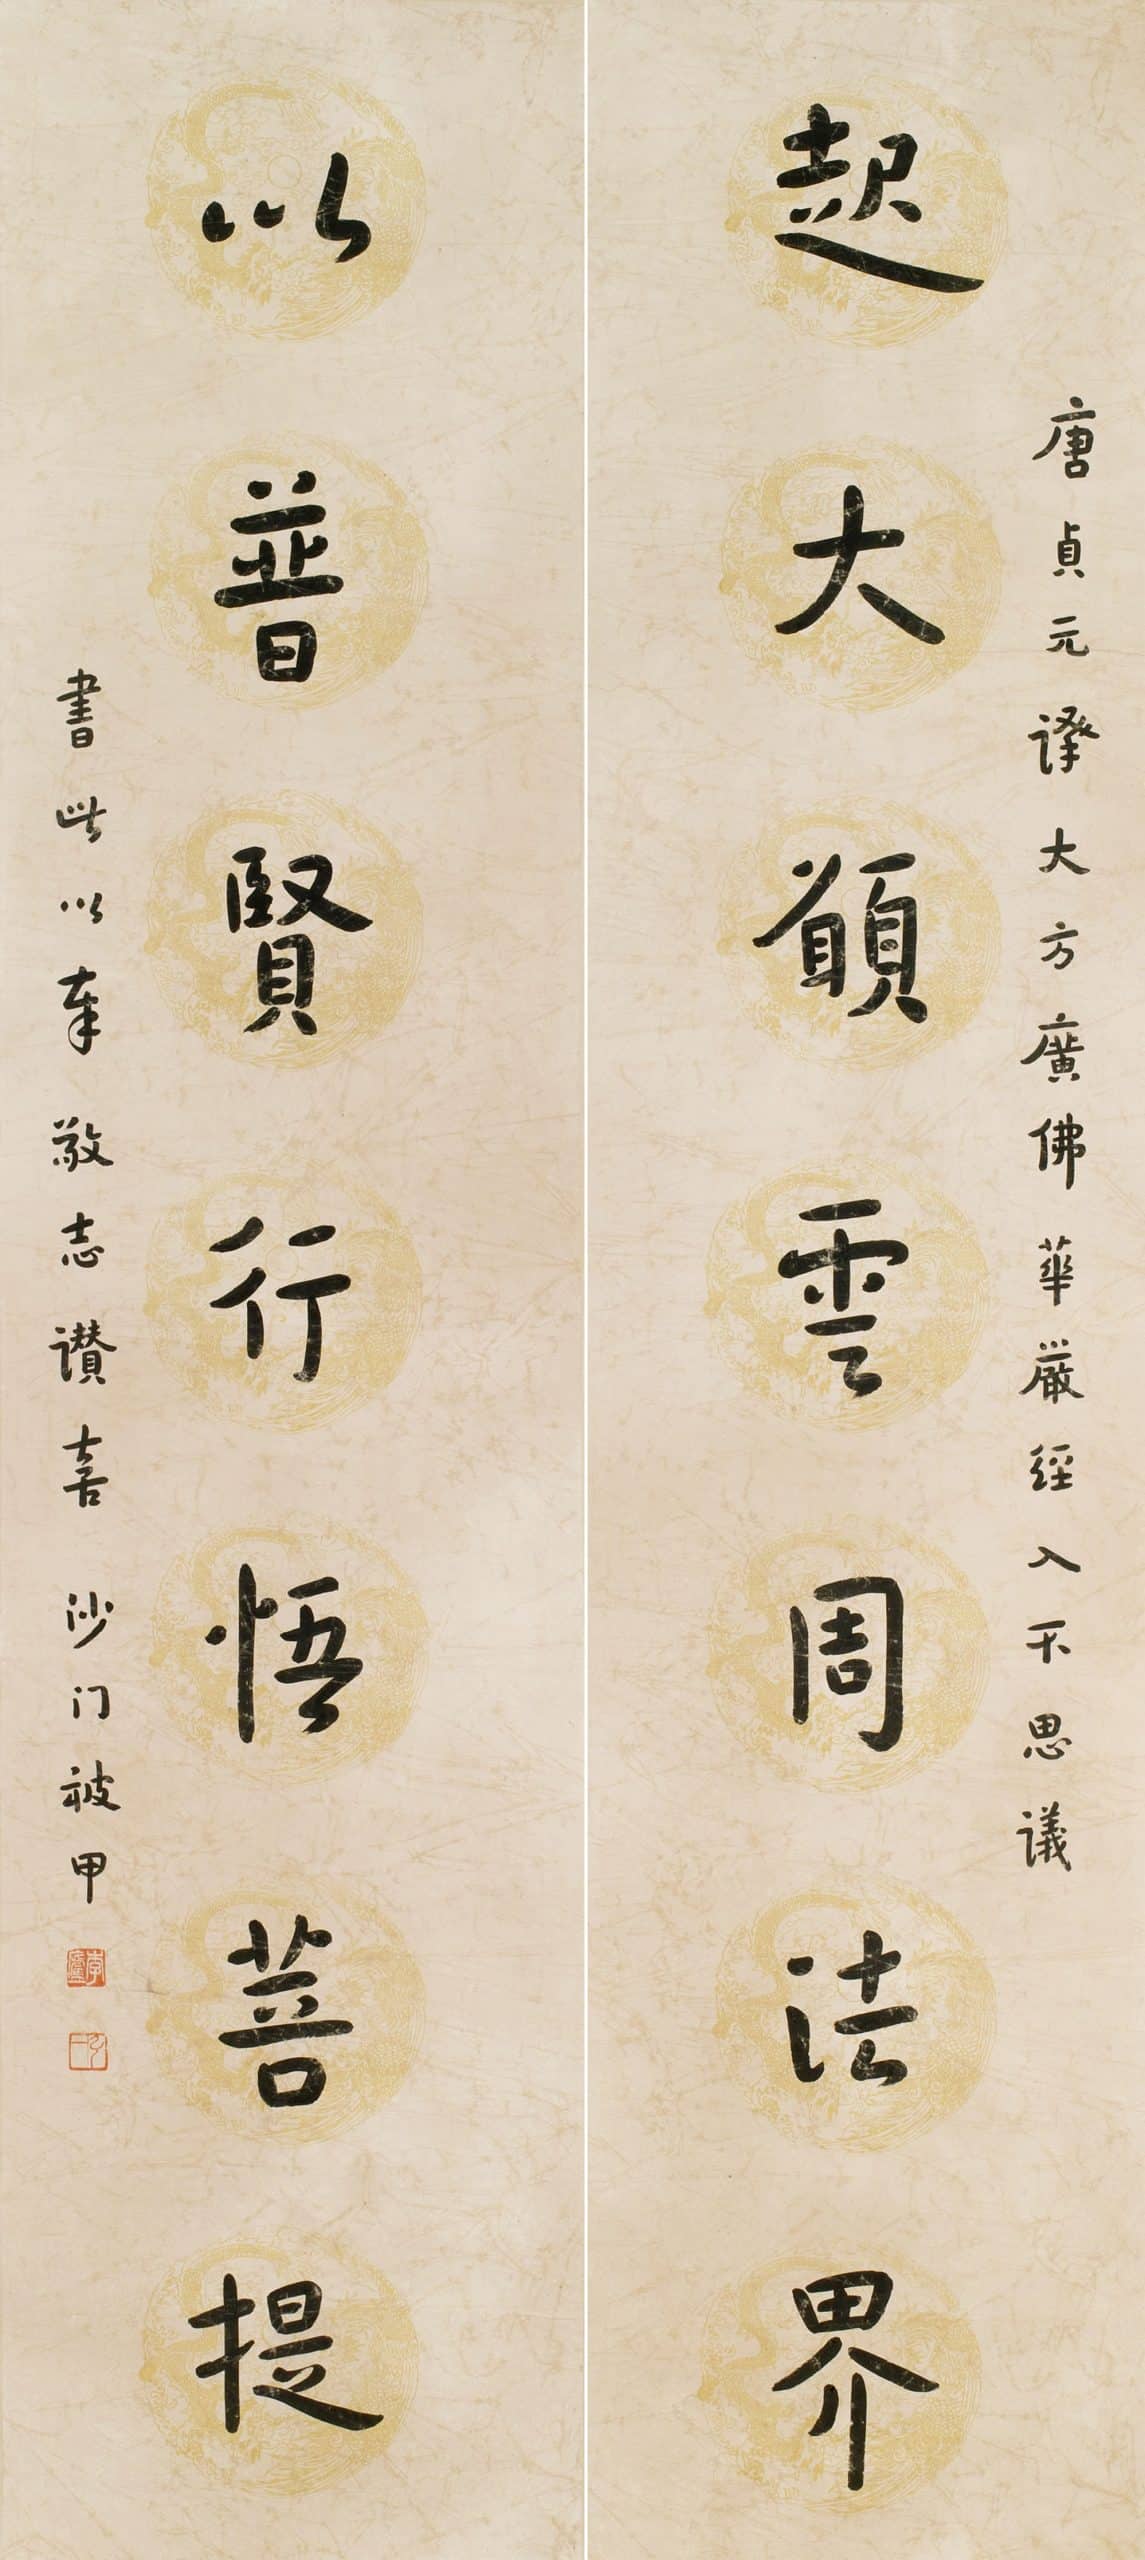 唐貞元譯大方廣佛華嚴經入不思議
起大願雲周法界
以普賢行悟菩提
書此以奉敬志讚喜 沙门被甲
李廬
弘一